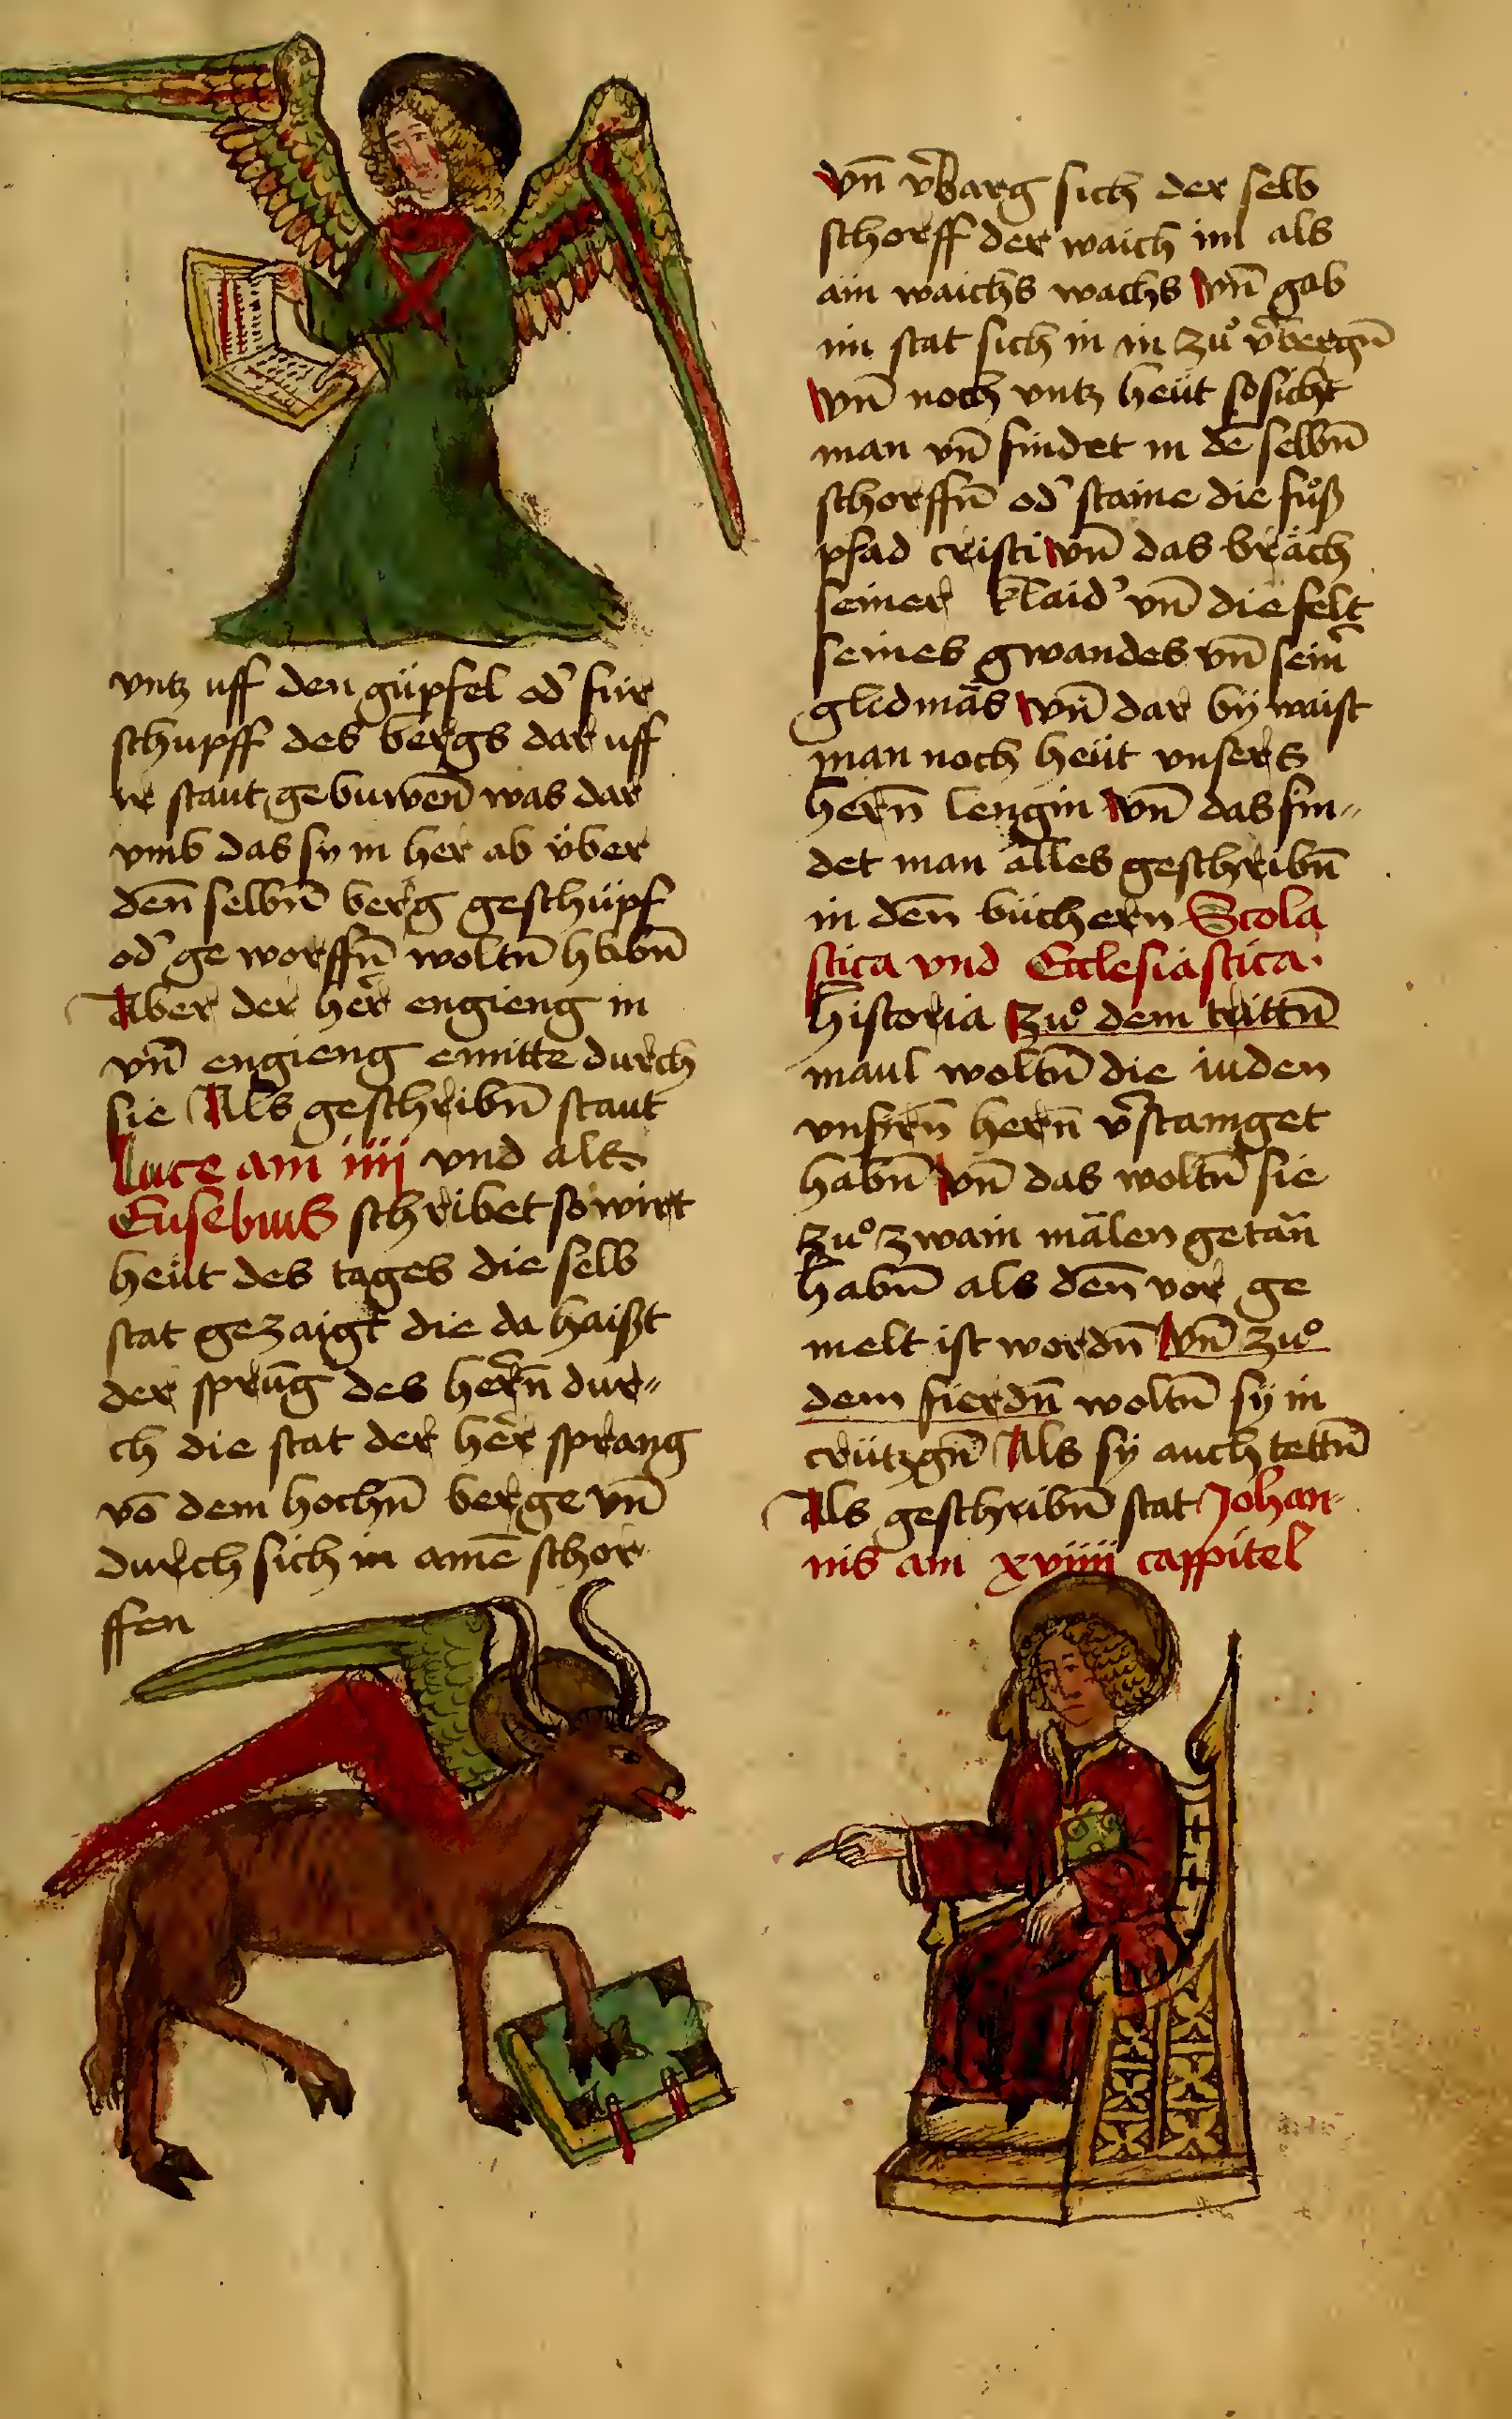 vntz uff den güpfel od' für
schupff des bergs dar uff
ir staut gebuwen̄ was dar
vmb das sy in her ab v̈ber
den̄ selbn̄ berg geschüpf
od' ge worffn̄ woltn̄ habn̄
Aber der her̄ engieng in
vn̄ engieng emitte durch
sie Als geschribn̄ staut
Luce am iiij vnd als
Eusebius schribet so wirt
heüt des tages die selb
stat gezaigt die da haißt
der sprūng des hern̄ dur„
ch die stat der her̄ sprang
vō dem hochn̄ berge vn̄
durch sich in ainē schor
ffen
vn̄ v̄barg sich der selb
schorff der waich im als
ain waichs wachs vn̄ gab
im stat sich in in zuͦ v̄bergn̄
vn̄ noch vntz heüt so sicht
man vn̄ findet in dē selbn̄
schorffn̄ od' staine die fuͦß
pfad cristi vn̄ das bräch
seiner klaid' vn̄ die felt
seines gwandes vn̄ sein̄
glidmās vn̄ dar bÿ waist
man noch heüt vnsers
hern̄ lengin vn̄ das fin„
det man alles geschribn̄
in den̄ büchern Scola
stica vnd Ecclesiastica
historia zuͦ dem trittn̄
maul woltn̄ die iuden
vnsern̄ hern̄ v̄stainget
habn̄ vn̄ das woltn̄ sie
zuͦ zwain mālen getān
habn̄ als den̄ vor ge
melt ist wordn̄ vn̄ zuͦ
dem fierdn̄ woltn̄ sÿ in
crützgn̄ Als sÿ auch tettn̄
Als geschribn̄ stat Johan
nis am xviiij cappitel